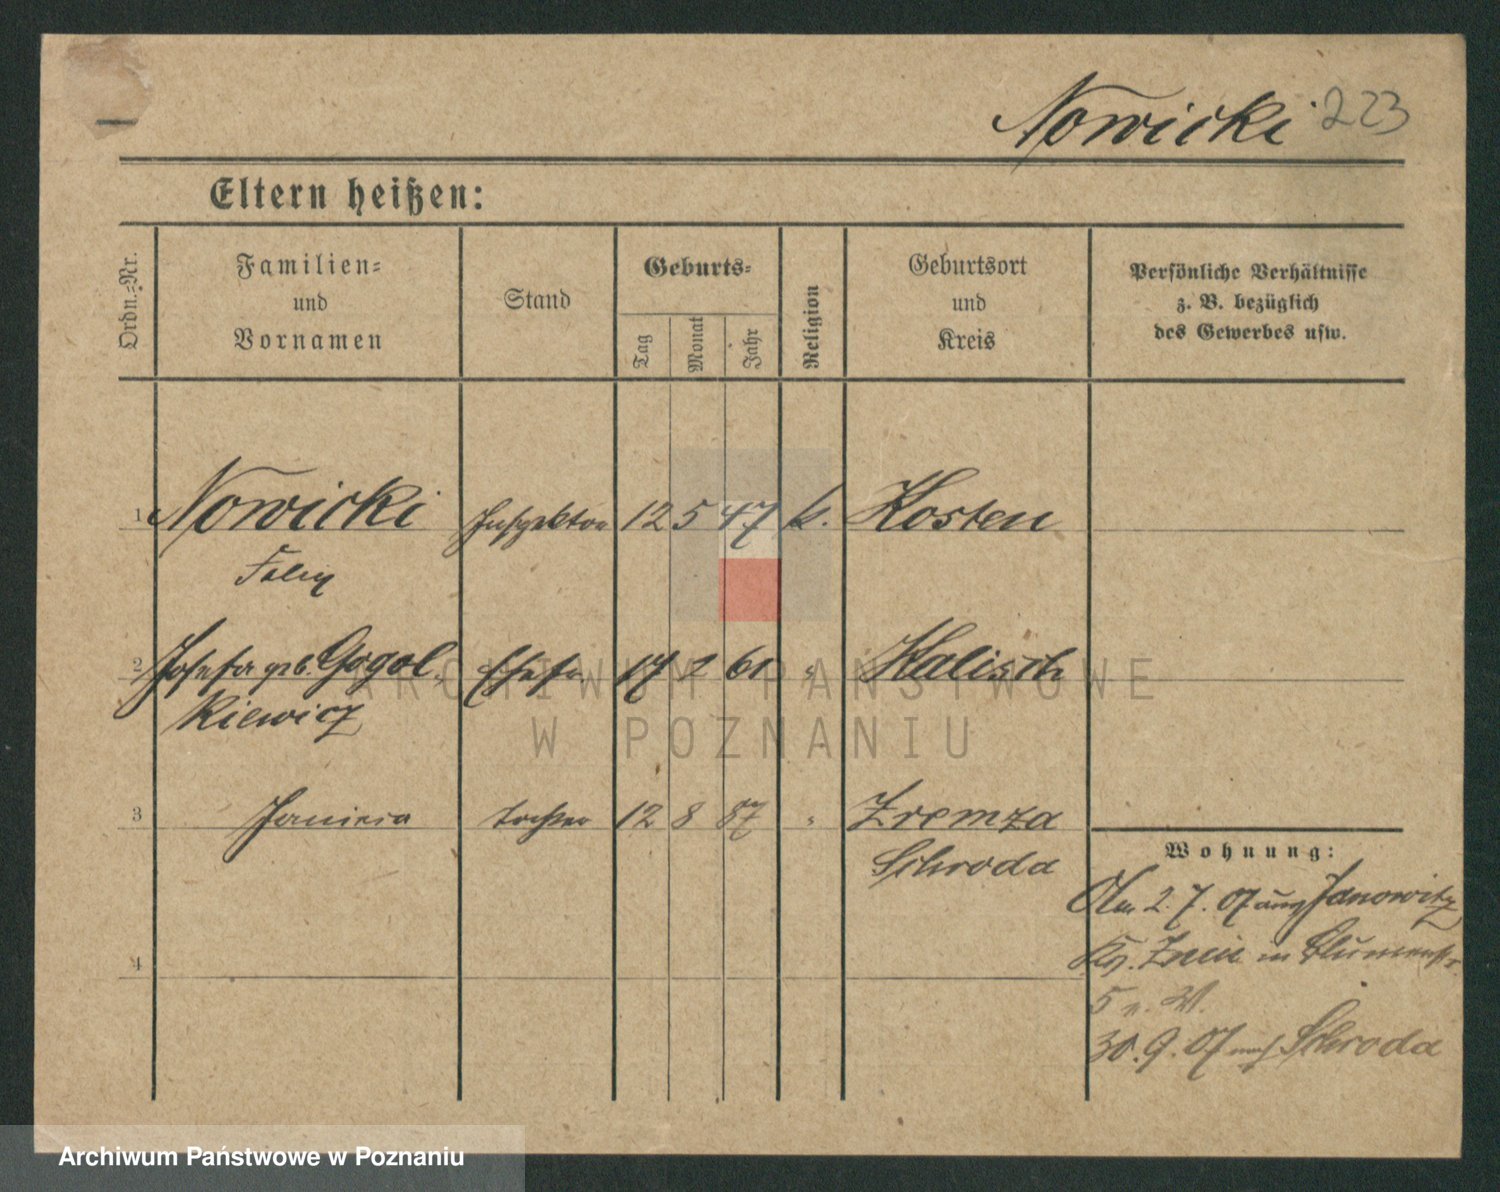 Nowicki 223
Eltern heißen:
Ordn.-Nr.
Familien-
und
Vornamen
Stand
Geburts-
Tag
Monat
Jahr
Religion
Geburtsort
und
Kreis
Persönliche Verhältnisse
z. B. bezüglich
des Gewerbes usw.
1 Nowicki Inspektor 12 5 47 k. Kosten
Felix
2 Josefa geb. Gogol- Ehefr. 17 2 61 " Kalisch
kiewicz
3 Janina Tochter 12 8 87 " Zremza
Schroda
Wohnung:
2. 7. 07 aus Janowitz
Kr. Znin in Blumenstr.
5 b. W.
30. 9. 07 nach Schroda
4
ARCHIWUM PAŃSTWOWE
W POZNANIU
Archiwum Państwowe w Poznaniu